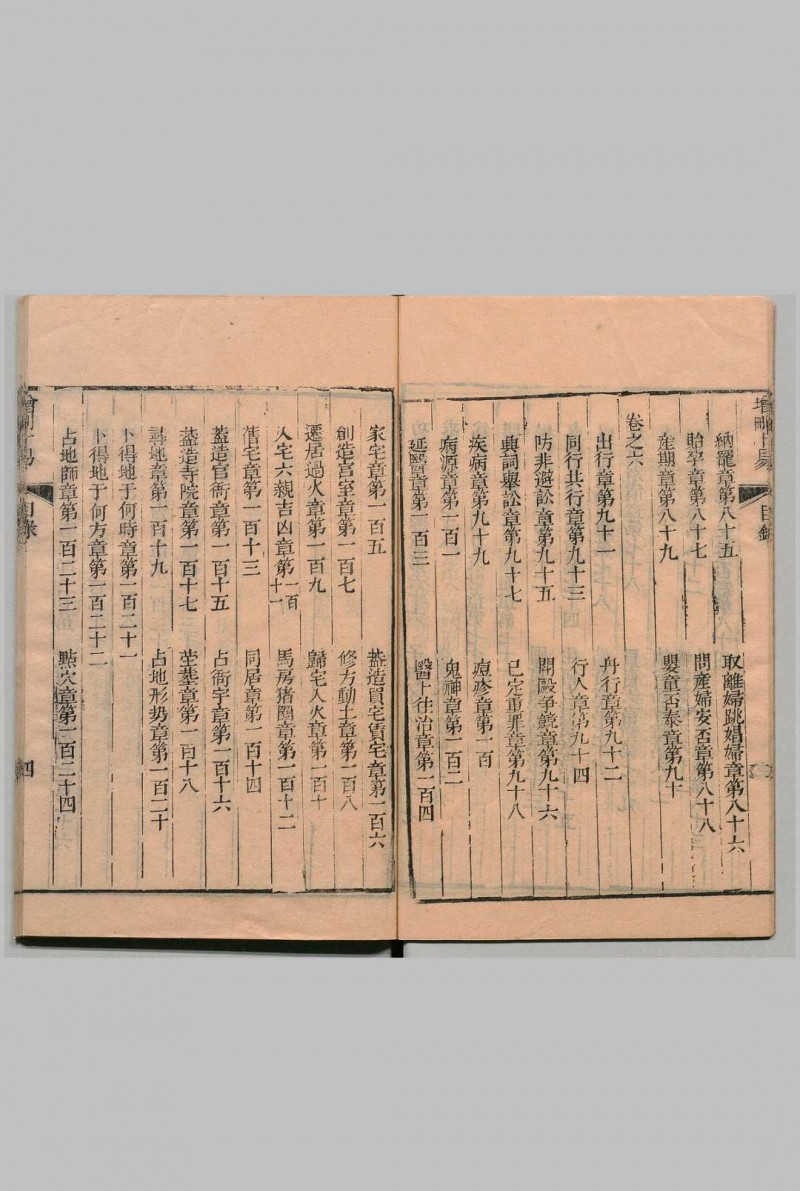 增刪卜易
目錄
納寵章第八十五
取離婦跳娼婦章第八十六
胎孕章第八十七
問產婦安否章第八十八
產期章第八十九
嬰童否泰章第九十
卷之六
出行章第九十一
舟行章第九十二
同行共行章第九十三
行人章第九十四
防非避訟章第九十五
鬭毆爭競章第九十六
興詞舉訟章第九十七
已定重罪章第九十八
疾病章第九十九
痘疹章第一百
病源章第一百一
鬼神章第一百二
延醫章第一百三
醫卜往治章第一百四
家宅章第一百五
蓋造買宅賃宅章第一百六
創造宮室章第一百七
修方動土章第一百八
遷居過火章第一百九
歸宅入火章第一百十
入宅六親吉凶章第一百十一
馬房豬圈章第一百十二
借宅章第一百十三
同居章第一百十四
蓋造官衙章第一百十五
占衙宇章第一百十六
蓋造寺院章第一百十七
塋墓章第一百十八
尋地章第一百十九
占地形勢章第一百二十
卜得地于何時章第一百二十一
卜得地于何方章第一百二十二
占地師章第一百二十三
點穴章第一百二十四
增刪卜易
目錄
四